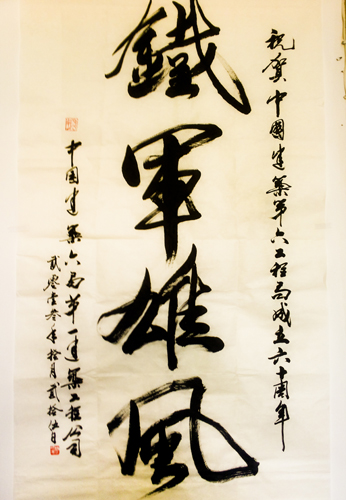 祝贺中國建築第六工程局成立六十周年
鐵軍雄風
中國建築六局第一建築工程公司
貳零壹叁年拾月貳拾伍日